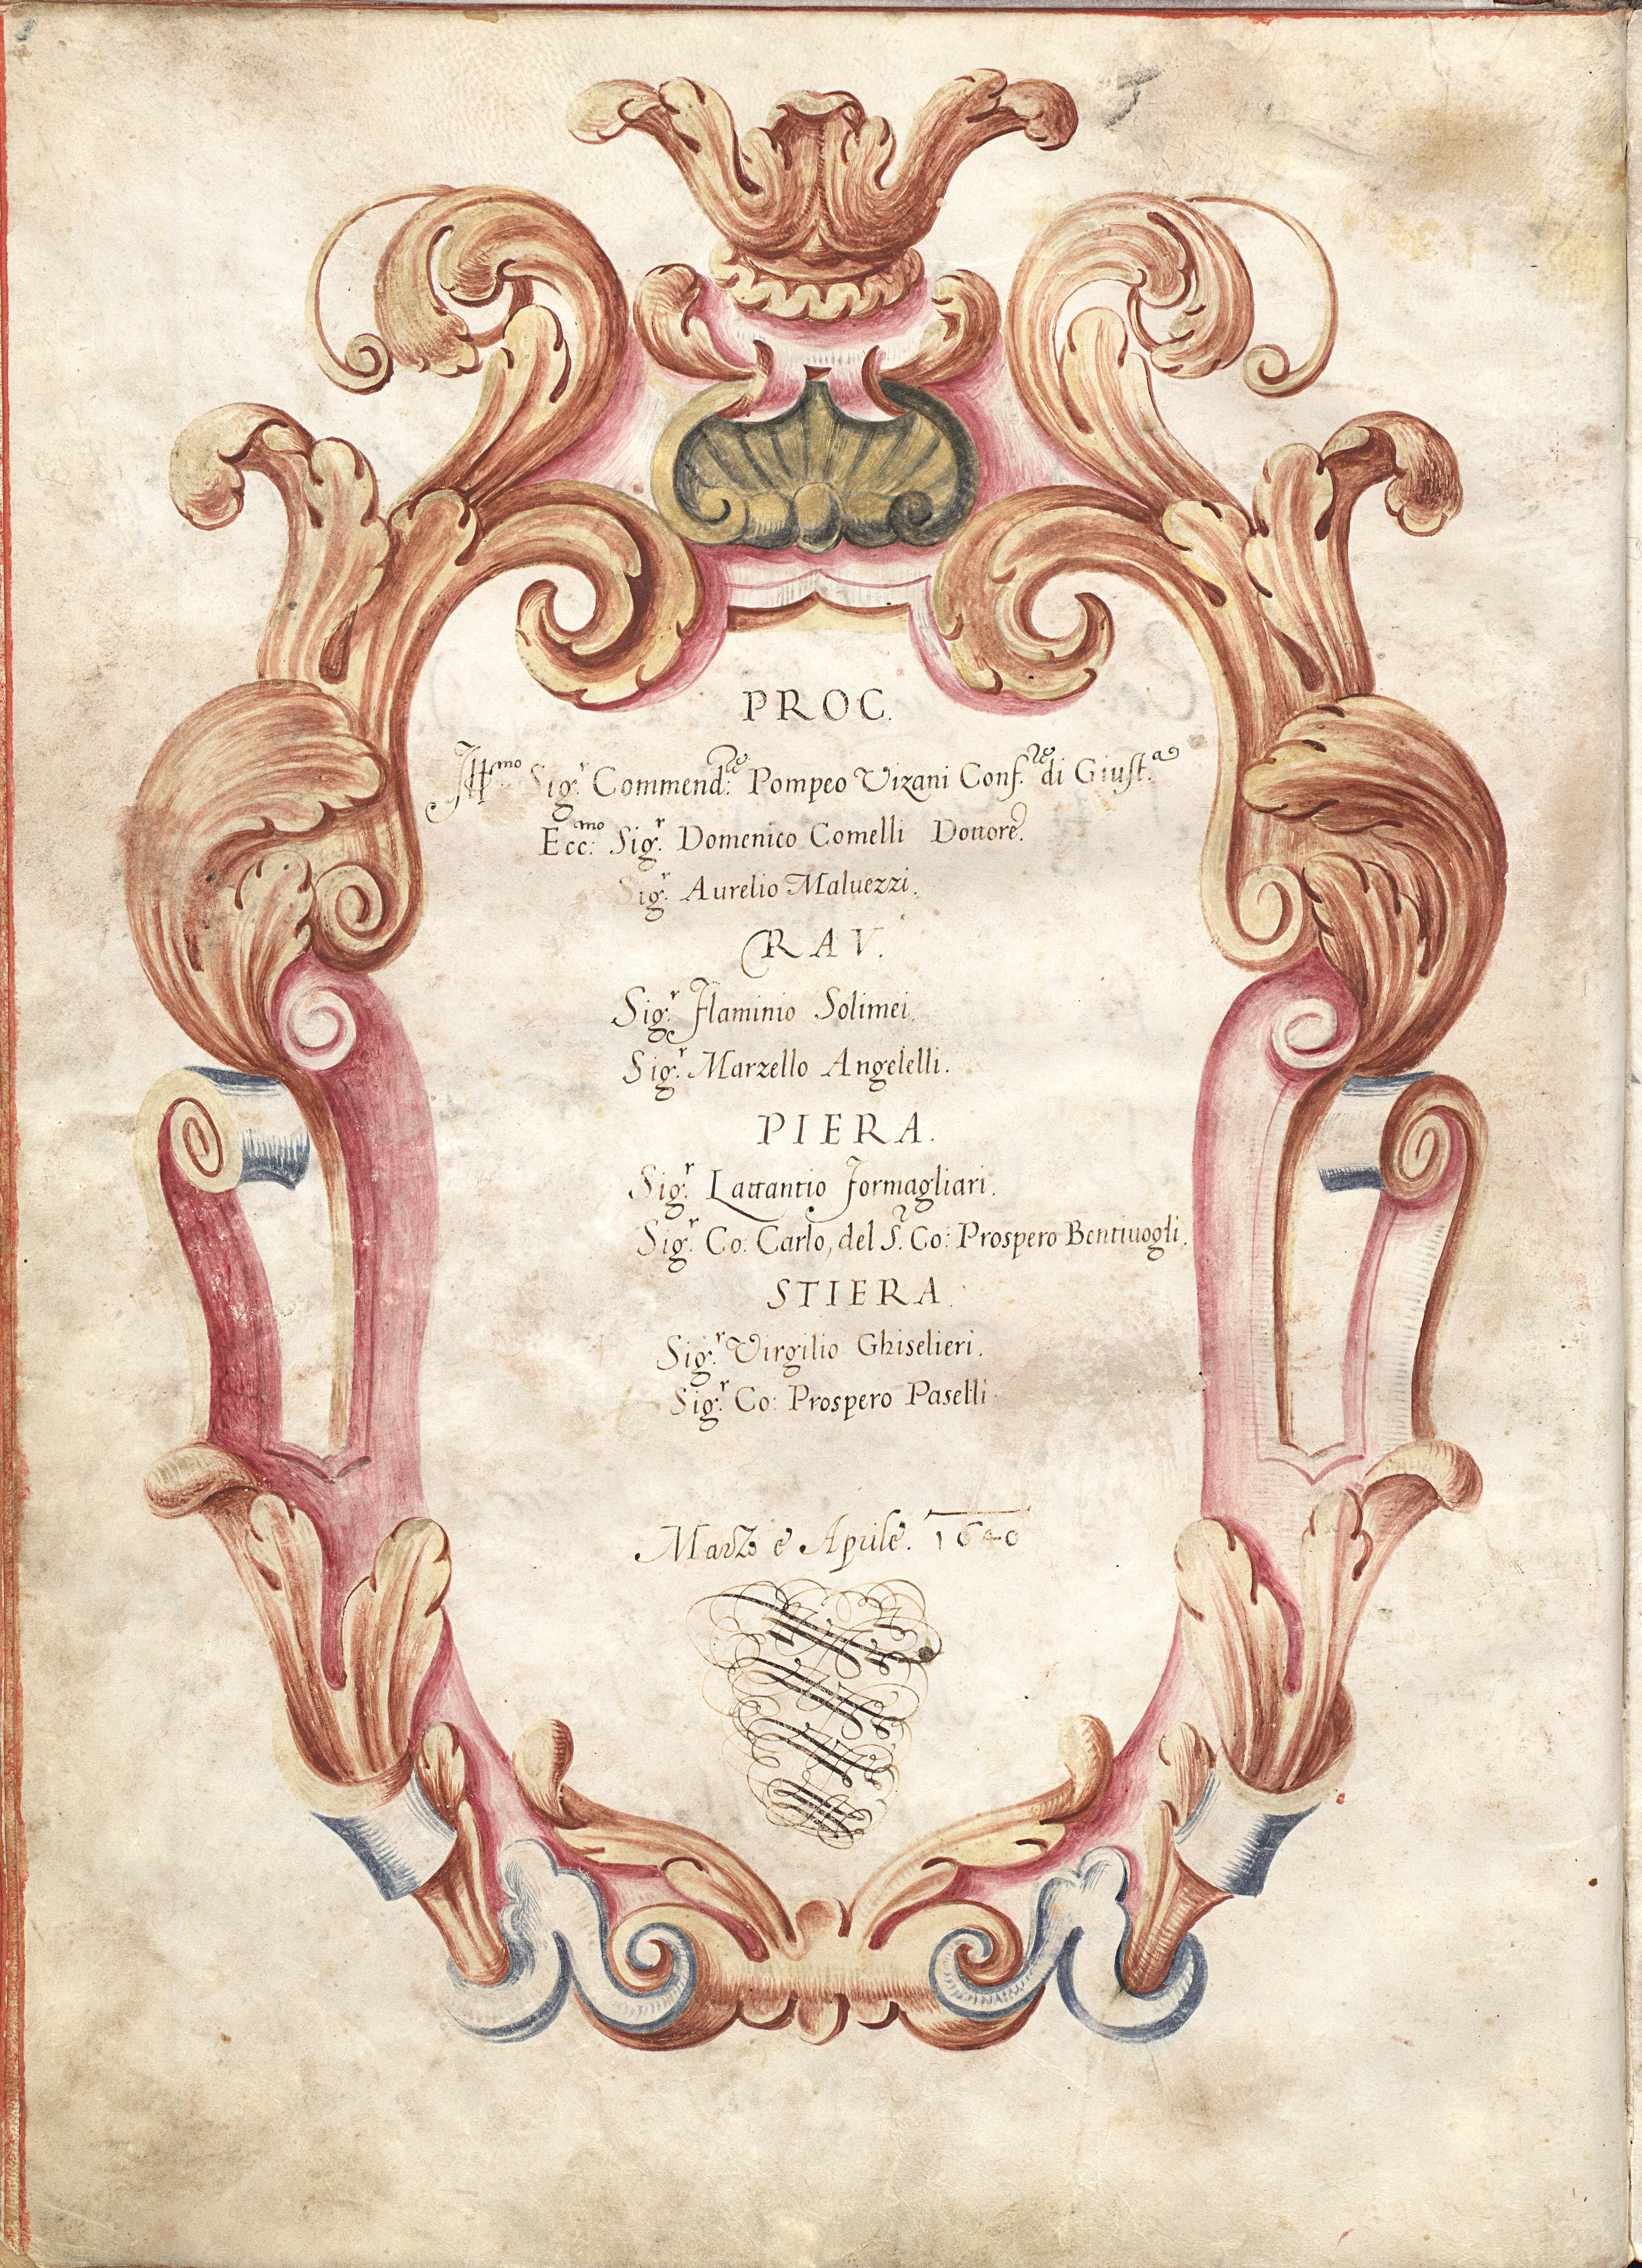 PROC.
Ill.mo Sig.r Commend.re Pompeo Vizani Conf.re di Giust.a
Ecc.mo Sig.r Domenico Comelli Dottore.
Sig.r Aurelio Maluezzi.
RAV.
Sig.r Flaminio Solimei.
Sig.r Marzello Angelelli.
PIERA.
Sig.r Lattantio Formagliari.
Sig.r Co: Carlo, del S.r Co: Prospero Bentiuogli.
STIERA.
Sig.r Virgilio Ghiselieri.
Sig.r Co: Prospero Paselli.
Marzo e Aprile. 1640